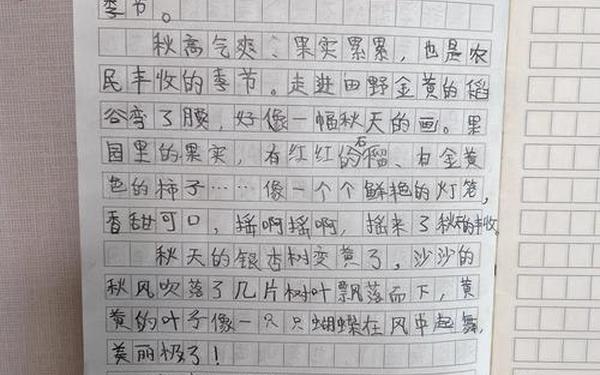 季节。
秋高气爽、果实累累,也是农
民丰收的季节。走进田野金黄的稻
谷弯了腰,好像一幅秋天的画。果
园里的果实,有红红的石榴、有金黄
色的柿子……像一个个鲜艳的灯笼,
香甜可口,摇啊摇啊,摇来了秋天的丰收。
秋天的银杏树变黄了,沙沙的
秋风吹落了几片树叶飘落而下,黄
黄的叶子像一只只蝴蝶在风中起舞,
美丽极了!